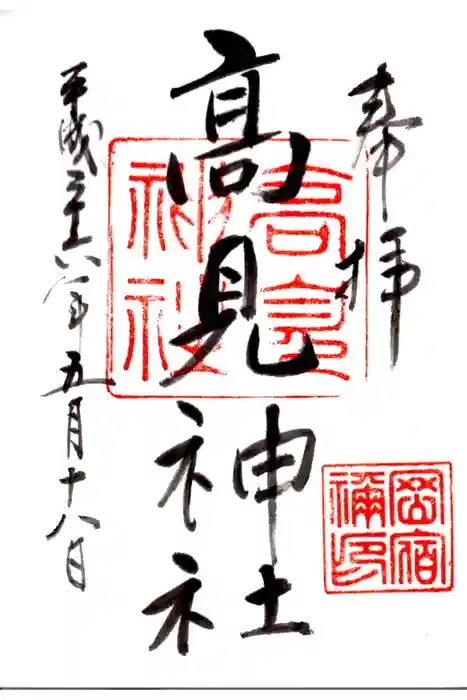 奉拝
高見神社
平成二十六年五月十八日